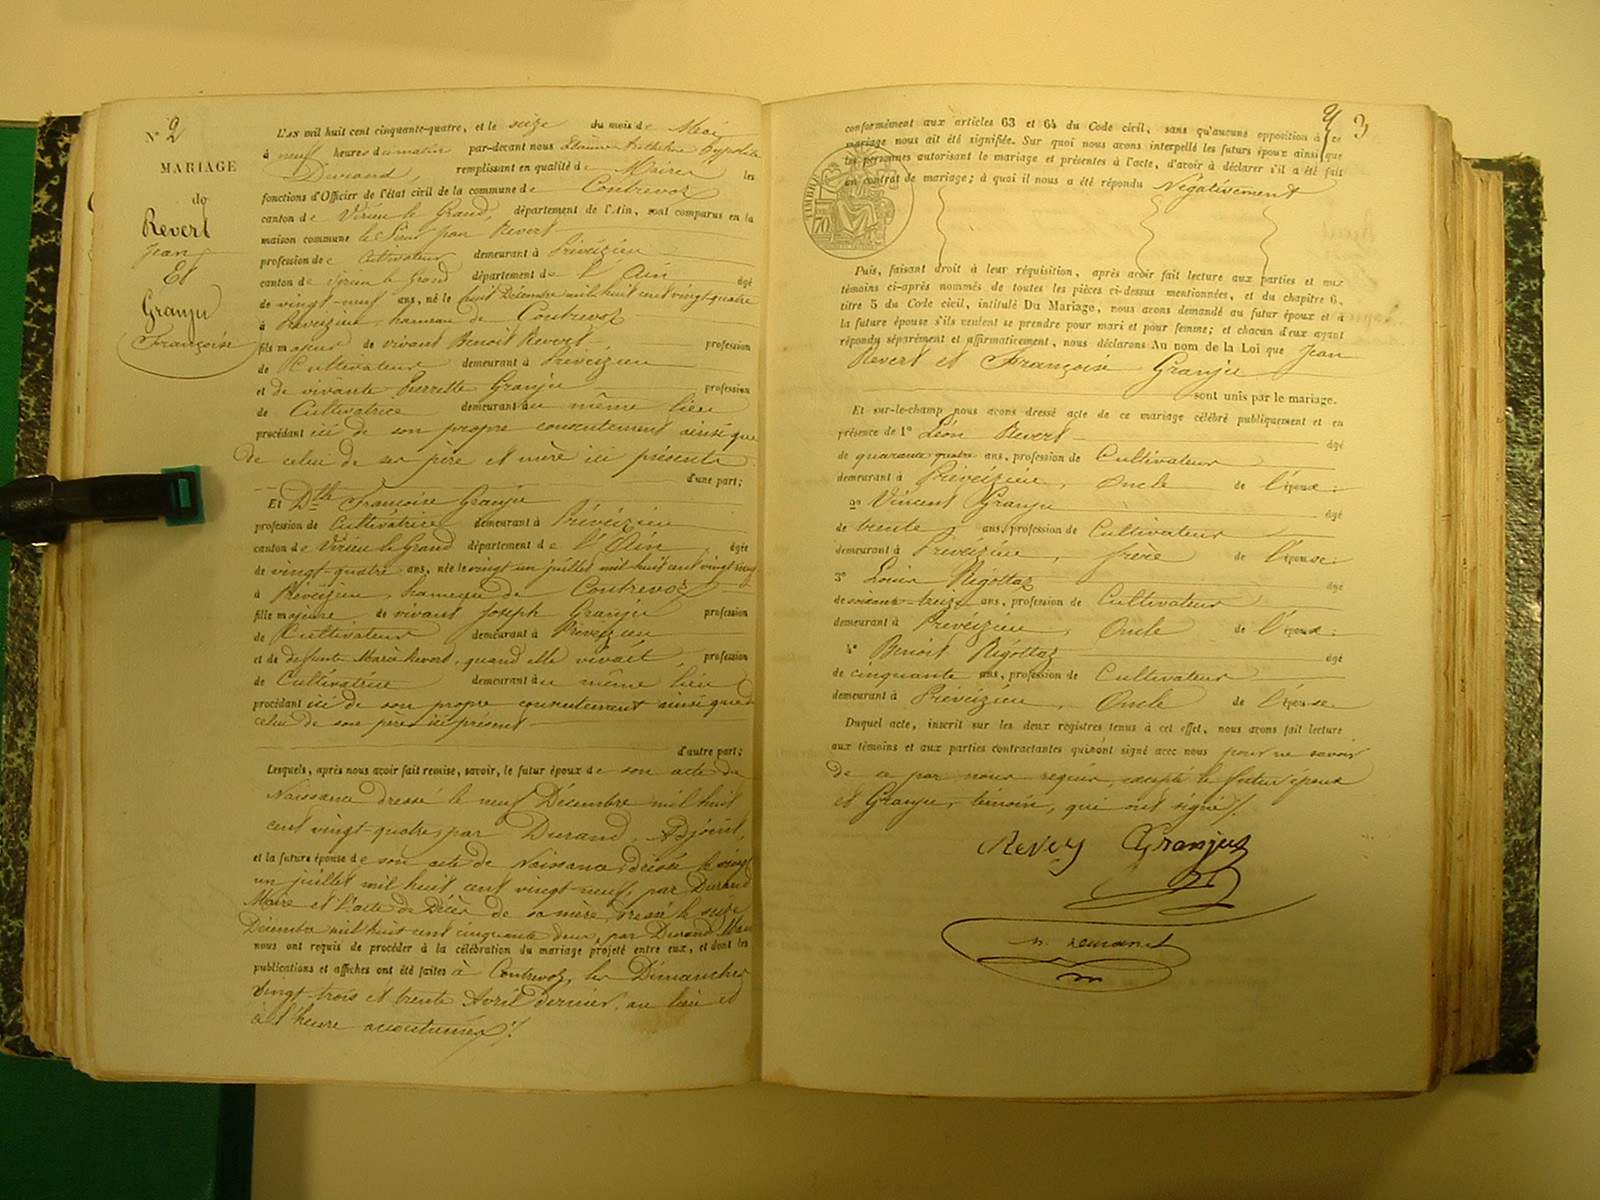 N° 2
MARIAGE
de
Revert
Jean
Et
Granju
Françoise
L'AN mil huit cent cinquante-quatre, et le seize du mois de Mai
à neuf heures du matin par-devant nous Hypolite
Durand, remplissant en qualité de Maire les
fonctions d'Officier de l'état civil de la commune de Contrevoz
canton de Virieu le Grand, département de l'Ain, sont comparus en la
maison commune le Sieur Jean Revert
profession de Cultivateur demeurant à Préveizieu
canton de Virieu le Grand département de l'Ain âgé
de vingt-neuf ans, né le huit Décembre mil huit cent vingt quatre
à Préveizieu, hameau de Contrevoz
fils majeur de vivant Benoit Revert profession
de Cultivateur demeurant à Préveizieu
et de vivante Pierrette Granju profession
de Cultivatrice demeurant au même lieu
procédant ici de son propre consentement ainsi que
de celui de ses père et mère ici présents
d'une part;
Et Dlle Francoise Granju
profession de Cultivatrice demeurant à Préveizieu
canton de Virieu le Grand département de l'Ain âgée
de vingt-quatre ans, née le vingt un juillet mil huit cent vingt neuf
à Préveizieu, hameau de Contrevoz
fille majeure de vivant Joseph Granju profession
de Cultivateur demeurant à Préveizieu
et de deffunte Marie Revert, quand elle vivait, profession
de Cultivatrice demeurant au même lieu
procédant ici de son propre consentement ainsi que de
celui de son père ici présent
d'autre part;
Lesquels, après nous avoir fait remise, savoir, le futur époux de son acte de
Naissance dressé le neuf Décembre mil huit
cent vingt-quatre, par Durand, Adjoint,
et la future épouse de son acte de Naissance, dressé le vingt
un juillet mil huit cent vingt-neuf, par Durand
Maire et l'acte de Décès de sa mère, dressé le seize
Décembre mil huit cent cinquante deux, par Durand Maire
nous ont requis de procéder à la célébration du mariage projeté entre eux, et dont les
publications et affiches ont été faites à Contrevoz, les Dimanches
vingt-trois et trente Avril dernier, au lieu et
à l'heure accoutumés /.
3
conformément aux articles 63 et 64 du Code civil, sans qu'aucune opposition à ce
mariage nous ait été signifiée. Sur quoi nous avons interpellé les futurs époux ainsi que
les personnes autorisant le mariage et présentes à l'acte, d'avoir à déclarer s'il a été fait
un contrat de mariage; à quoi il nous a été répondu Négativement
TIMBRE
Puis, faisant droit à leur réquisition, après avoir fait lecture aux parties et aux
témoins ci-après nommés de toutes les pièces ci-dessus mentionnées, et du chapitre 6,
titre 5 du Code civil, intitulé Du Mariage, nous avons demandé au futur époux et à
la future épouse s'ils veulent se prendre pour mari et pour femme; et chacun d'eux ayant
répondu séparément et affirmativement, nous déclarons Au nom de la Loi que Jean
Revert et Françoise Granju
sont unis par le mariage.
Et sur-le-champ nous avons dressé acte de ce mariage célébré publiquement et en
présence de 1° Léon Revert âgé
de quarante quatre ans, profession de Cultivateur
demeurant à Préveizieu, Oncle de l'époux;
2° Vincent Granju âgé
de trente ans, profession de Cultivateur
demeurant à Préveizieu, frère de l'épouse;
3° Louis Rigottaz âgé
de soixante-treize ans, profession de Cultivateur
demeurant à Préveizieu, Oncle de l'époux;
4° Benoit Rigottaz âgé
de cinquante ans, profession de Cultivateur
demeurant à Préveizieu, Oncle de l'épouse
Duquel acte, inscrit sur les deux registres tenus à cet effet, nous avons fait lecture
aux témoins et aux parties contractantes qui n'ont signé avec nous pour ne savoir
de ce par nous requis, excepté le futur époux
et Granju, témoin, qui ont signé /.
Revert Granju
h. Durand